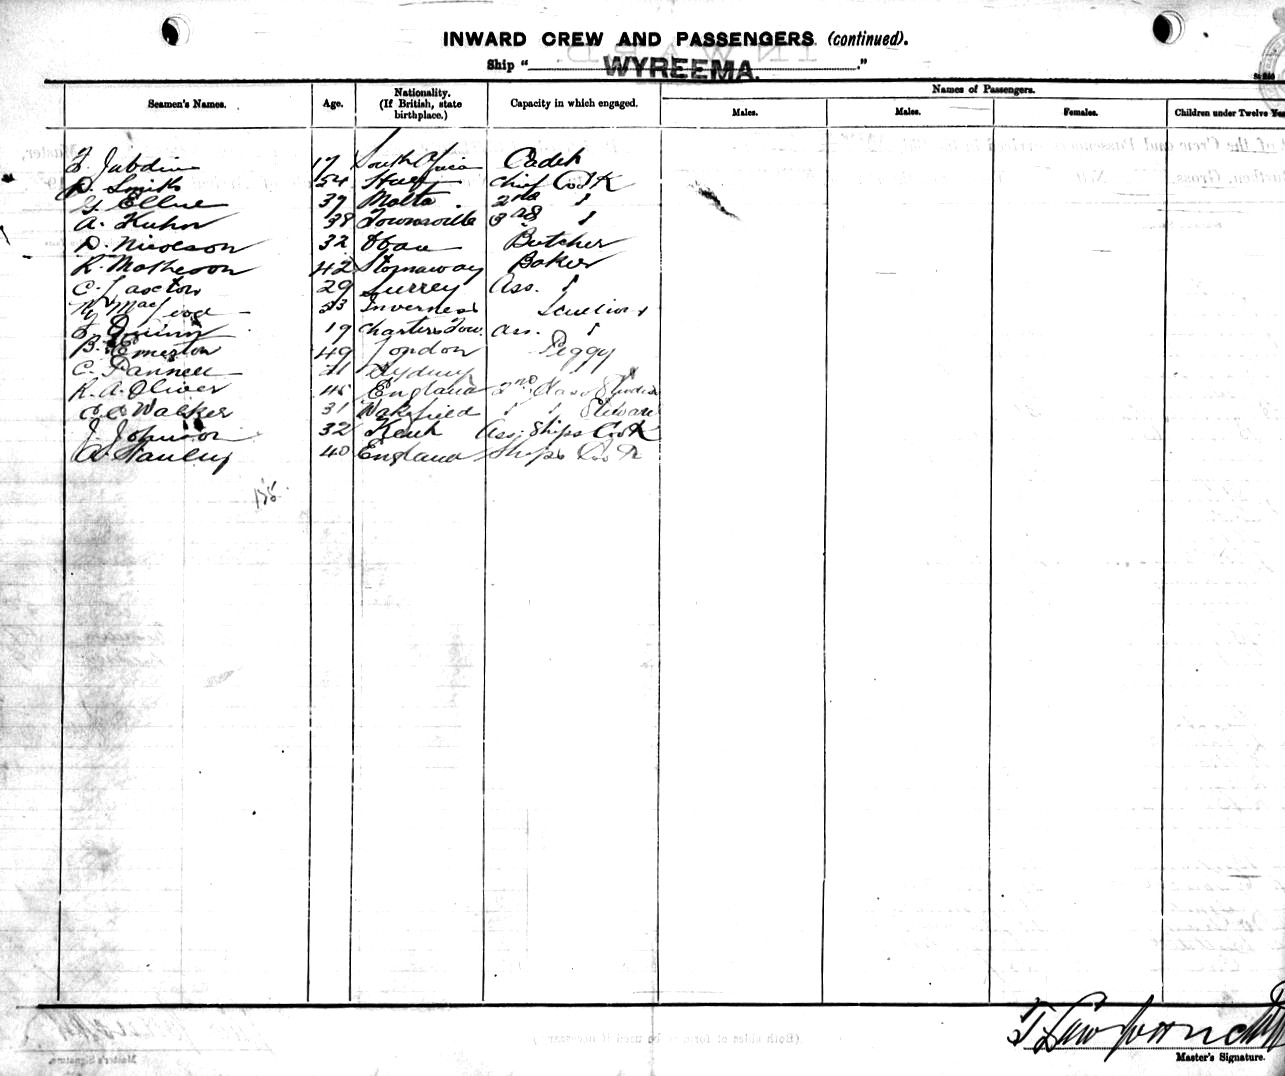 INWARD CREW AND PASSENGERS (continued).
Ship "WYREEMA."
Names of Passengers.
Seamen's Names. Age. Nationality. (If British, state birthplace.) Capacity in which engaged. Males. Males. Females. Children under Twelve
17 South Africa Cadet
D. Smith 54 Chief Cook
G. Ellue 37 Malta. 2nd "
A. Kuhn 38 Townsville 3rd "
D. Nicolson 32 Oban Butcher
R. Matheson 42 Stornaway Baker
C. Saxton 29 Surrey Ass. "
W. MacLeod 53 Inverness Scullion
Quinn 19 Charters Tow. Ass. "
B. Emerton 49 London Peggy
C. Pannell 21 Sydney
R. A. Oliver 45 England 2nd Class
Walker 31 Wakefield " " Steward
J. Johnson 32 Kent Ass. Ships Cook
A Stanley 40 England Ships Cook
Master's Signature.